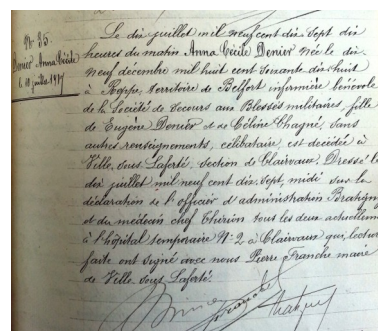 N° 35
Denier Anna Cécile
le 10 juillet 1917
Le dix juillet mil neuf cent dix sept dix
heures du matin Anna Cécile Denier née le dix
neuf décembre mil huit cent soixante dix huit
à Roppe, territoire de Belfort infirmière bénévole
de la Société de Secours aux Blessés militaires, fille
de Eugène Denier et de Céline Chagné, sans
autres renseignements, célibataire est décédée à
Ville sous Laferté, section de Clairvaux. Dressé le
dix juillet mil neuf cent dix sept, midi sur la
déclaration de l'officier d'administration
et du médecin chef Thérion tous les deux actuellement
à l'hôpital temporaire N° 2 à Clairvaux qui, lecture
faite ont signé avec nous Pierre Franche maire
de Ville sous Laferté.